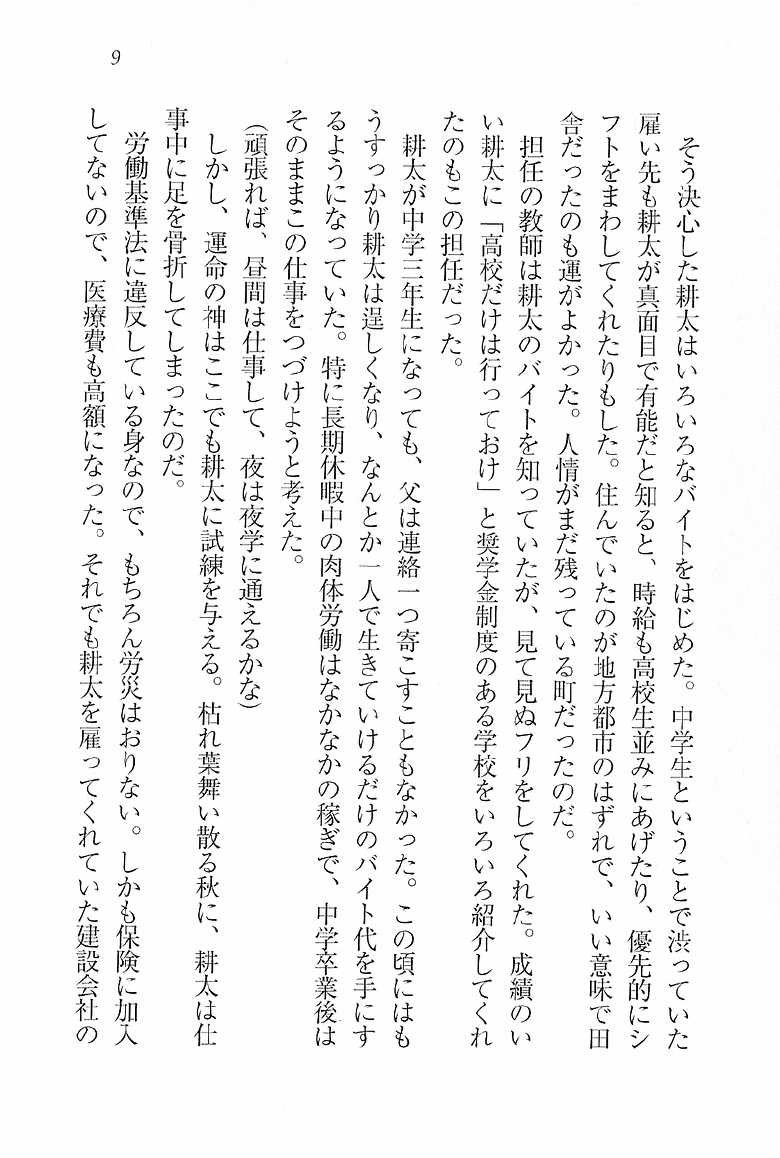 9
そう決心した耕太はいろいろなバイトをはじめた。中学生ということで渋っていた
雇い先も耕太が真面目で有能だと知ると、時給も高校生並みにあげたり、優先的にシ
フトをまわしてくれたりもした。住んでいたのが地方都市のはずれで、いい意味で田
舎だったのも運がよかった。人情がまだ残っている町だったのだ。
担任の教師は耕太のバイトを知っていたが、見て見ぬフリをしてくれた。成績のい
い耕太に「高校だけは行っておけ」と奨学金制度のある学校をいろいろ紹介してくれ
たのもこの担任だった。
耕太が中学三年生になっても、父は連絡一つ寄こすこともなかった。この頃にはも
うすっかり耕太は逞しくなり、なんとか一人で生きていけるだけのバイト代を手にす
るようになっていた。特に長期休暇中の肉体労働はなかなかの稼ぎで、中学卒業後は
そのままこの仕事をつづけようと考えた。
(頑張れば、昼間は仕事して、夜は夜学に通えるかな)
しかし、運命の神はここでも耕太に試練を与える。枯れ葉舞い散る秋に、耕太は仕
事中に足を骨折してしまったのだ。
労働基準法に違反している身なので、もちろん労災はおりない。しかも保険に加入
してないので、医療費も高額になった。それでも耕太を雇ってくれていた建設会社の